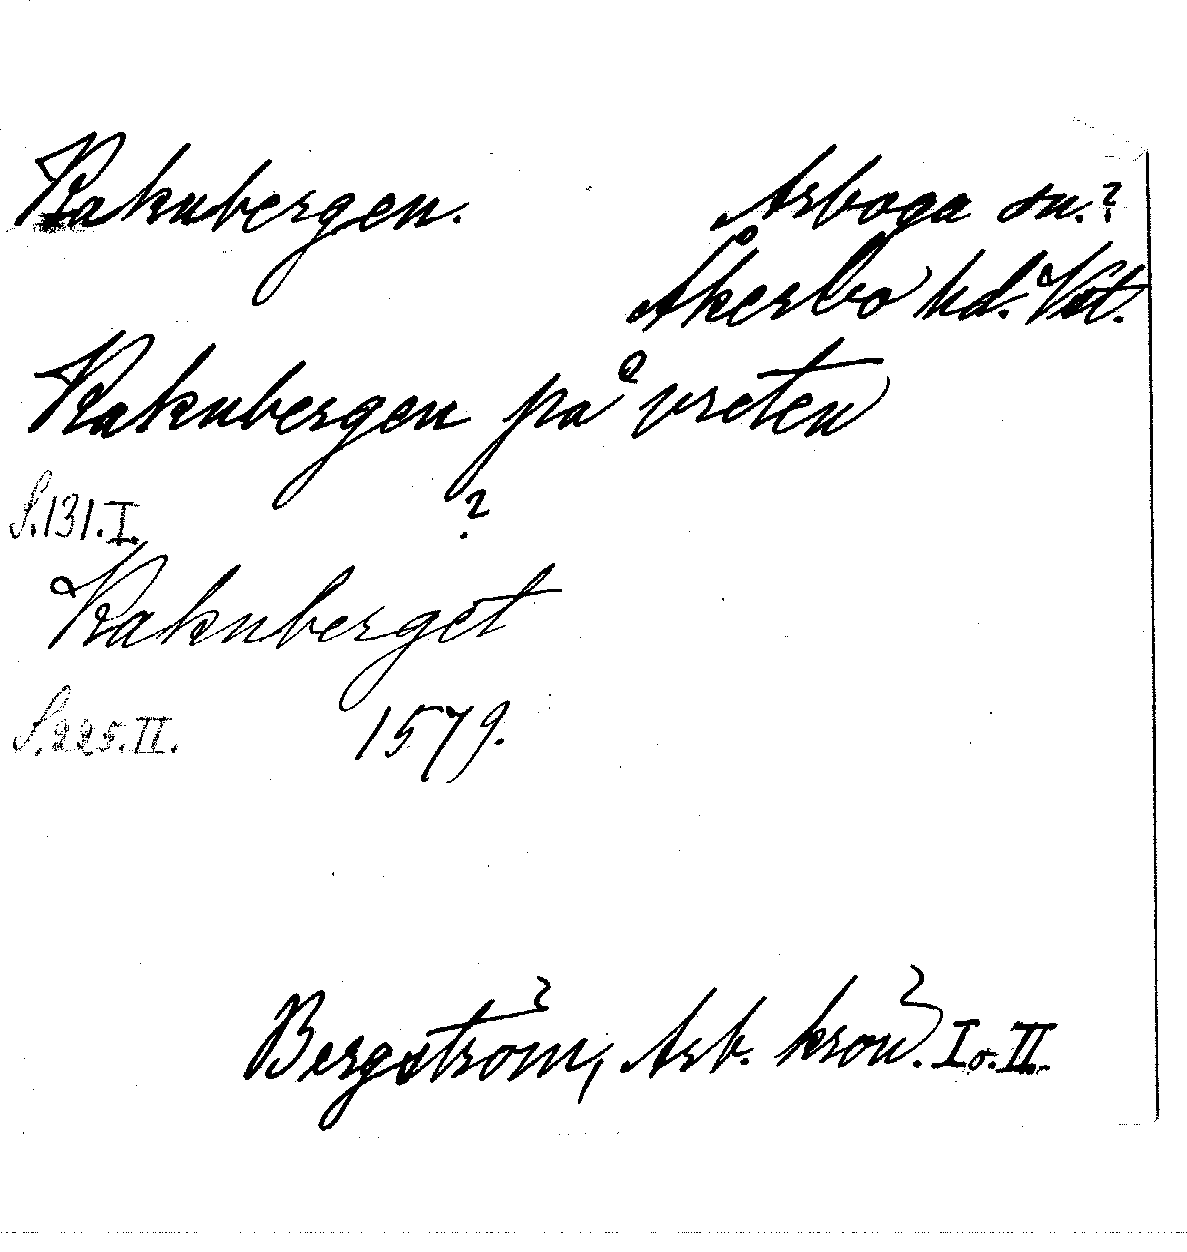 Kaknbergen. Arboga sn.?
Åkerbo hd. Vst.
Kaknbergen på vreten
S.131.I. ?
Kaknberget
S.225.II. 1579.
Bergström, Arb. krön. I o. II.